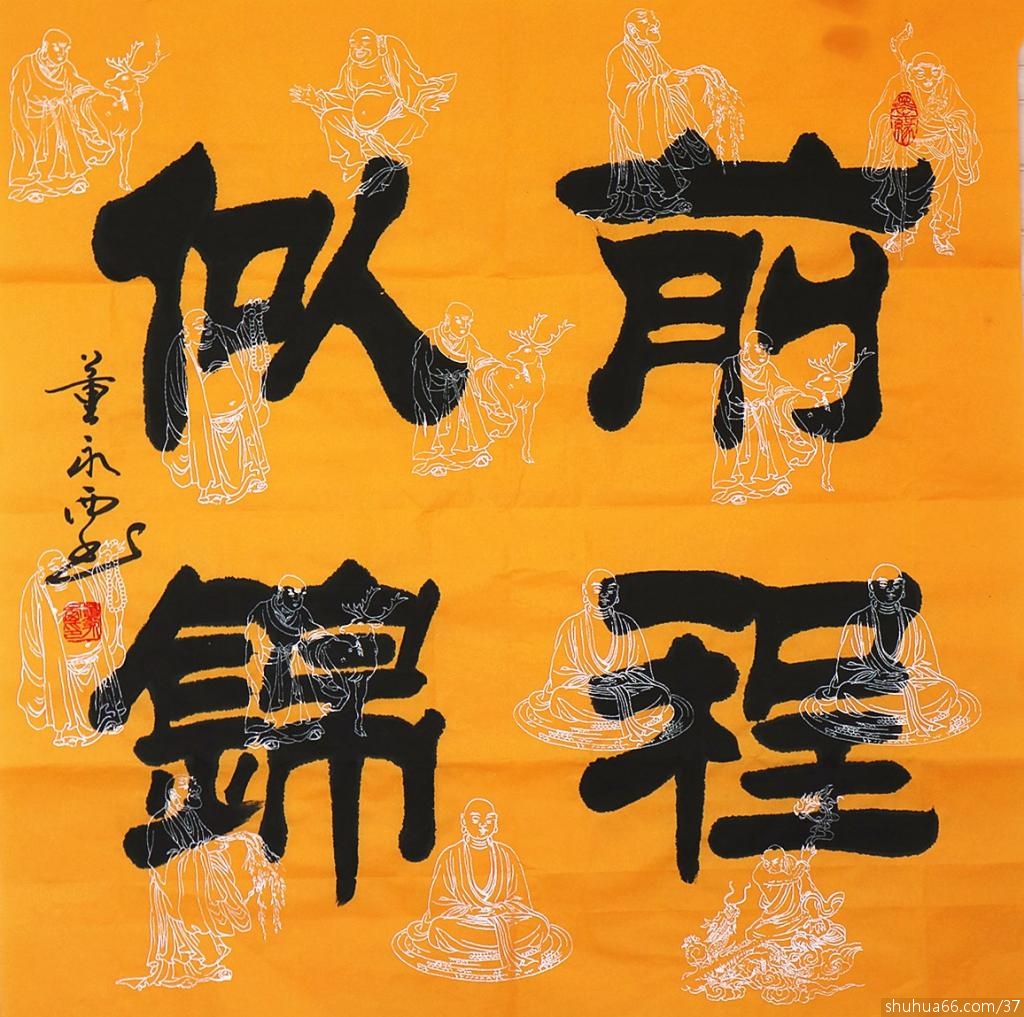 前程
似錦
董永西书
墨缘
shuhua66.com/37